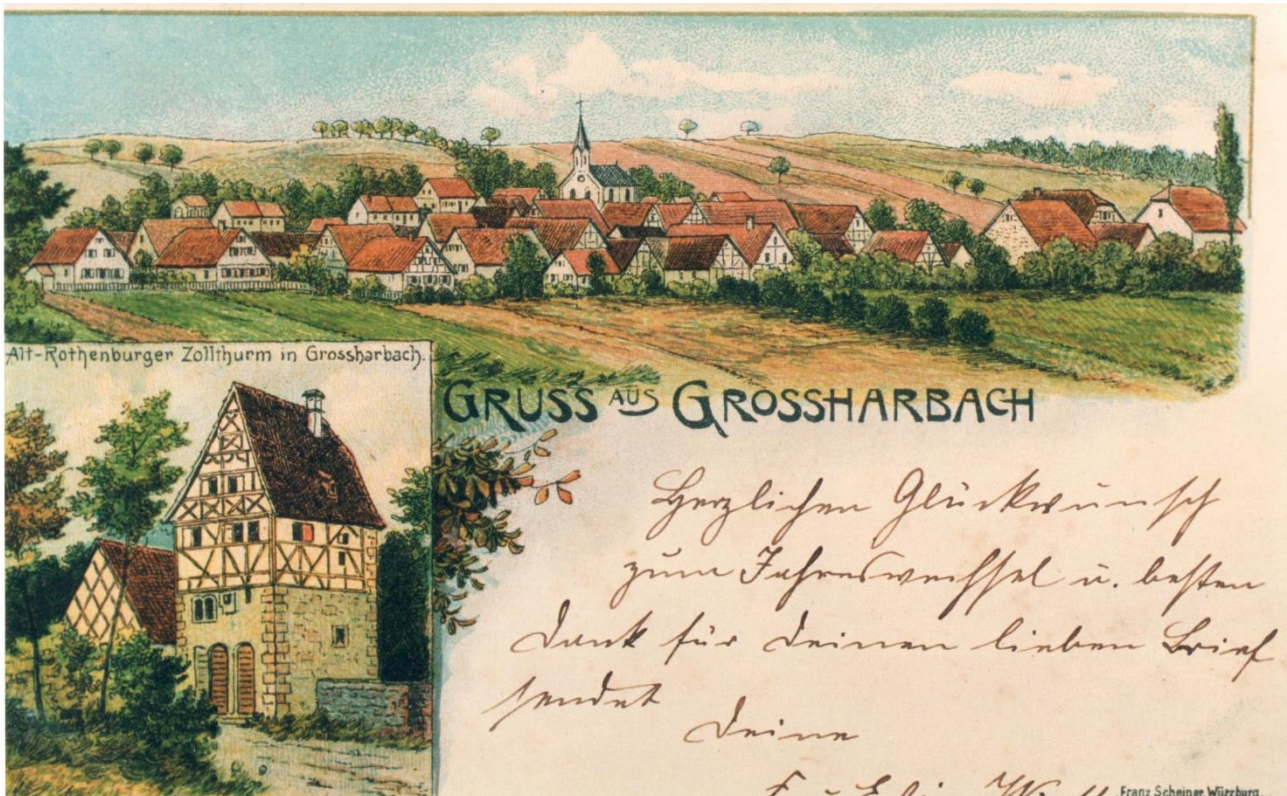 Alt-Rothenburger Zollthurm in Grossharbach.
GRUSS AUS GROSSHARBACH
Herzlichen Glückwunsch
zum Jahreswechsel u. besten
Dank für Deinen lieben Brief
sendet
Deine
Franz Scheiner Würzburg.